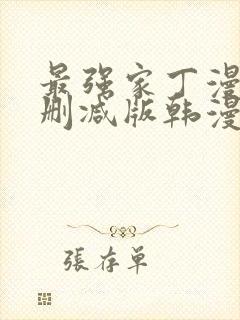 最强家丁漫
删减版韩漫
張存單